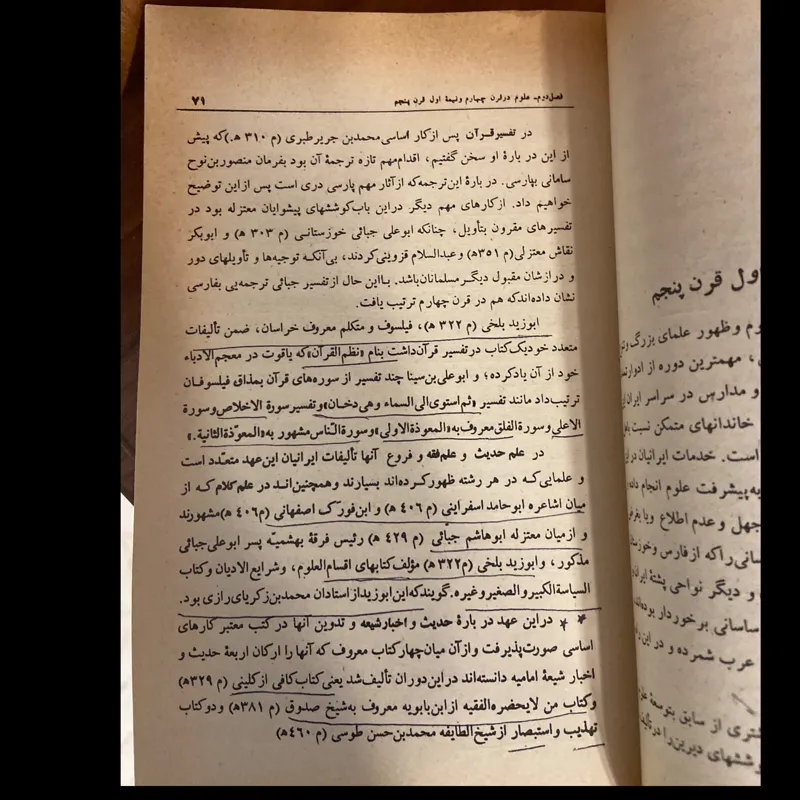 فصل دوم- علوم در قرن چهارم ونیمهٔ اول قرن پنجم
۷۱
در تفسیر قرآن پس از کار اساسی محمدبن جریر طبری (م ۳۱۰ ه.) که پیش
از این در بارهٔ او سخن گفتیم، اقدام مهم تازه ترجمهٔ آن بود بفرمان منصوربن نوح
سامانی بپارسی. در بارهٔ این ترجمه که از آثار مهم پارسی دری است پس از این توضیح
خواهیم داد. از کارهای مهم دیگر در این باب کوششهای پیشوایان معتزله بود در
تفسیرهای مقرون بتأویل، چنانکه ابوعلی جبائی خوزستانی (م ۳۰۳ ه) و ابوبکر
نقاش معتزلی (م ۳۵۱ ه) و عبدالسلام قزوینی کردند، بی‌آنکه توجیه‌ها و تأویلهای دور
و درازشان مقبول دیگر مسلمانان باشد. با این حال از تفسیر جبائی ترجمه‌یی بفارسی
نشان داده‌اند که هم در قرن چهارم ترتیب یافت.
ابوزید بلخی (م ۳۲۲ ه)، فیلسوف و متکلم معروف خراسان، ضمن تألیفات
متعدد خود یک کتاب در تفسیر قرآن داشت بنام «نظم القرآن» که یاقوت در معجم الادباء
خود از آن یاد کرده؛ و ابوعلی بن سینا چند تفسیر از سوره‌های قرآن بمذاق فیلسوفان
ترتیب داد مانند تفسیر «ثم استوی الی السماء وهی دخان» و تفسیر سورة الاخلاص و سورة
الاعلی و سورة الفلق معروف به «المعوذة الاولی» و سورة النّاس مشهور به «المعوّذة الثانیة.»
در علم حدیث و علم فقه و فروع آنها تألیفات ایرانیان این عهد متعدّد است
و علمایی که در هر رشته ظهور کرده‌اند بسیارند و همچنین‌اند در علم کلام که از
میان اشاعره ابوحامد اسفراینی (م ۴۰۶ ه) و ابن فورک اصفهانی (م ۴۰۶ ه) مشهورند
و از میان معتزله ابوهاشم جبائی (م ۴۲۹ ه) رئیس فرقهٔ بهشمیّه پسر ابوعلی جبائی
مذکور، و ابوزید بلخی (م ۳۲۲ ه) مؤلف کتابهای اقسام العلوم، و شرایع الادیان و کتاب
السیاسة الکبیر و الصغیر و غیره. گویند که این ابوزید از استادان محمدبن زکریای رازی بود.
* * در این عهد در بارهٔ حدیث و اخبار شیعه و تدوین آنها در کتب معتبر کارهای
اساسی صورت پذیرفت و از آن میان چهار کتاب معروف که آنها را ارکان اربعهٔ حدیث و
اخبار شیعهٔ امامیه دانسته‌اند در این دوران تألیف شد یعنی کتاب کافی از کلینی (م ۳۲۹ ه)
و کتاب من لایحضره الفقیه از ابن بابویه معروف به شیخ صدوق (م ۳۸۱ ه) و دو کتاب
تهذیب و استبصار از شیخ الطایفه محمدبن حسن طوسی (م ۴۶۰ ه)
اول قرن پنجم
وم و ظهور علمای بزرگ
، مهمترین دوره از ادوار
و مدارس در سراسر ایران
خاندانهای متمکن نسبت
است. خدمات ایرانیان در
به پیشرفت علوم انجام داده
جهل و عدم اطلاع ویا
سانی را که از فارس و
و دیگر نواحی پشتهٔ ایران
ساسانی برخوردار بوده‌اند
عرب شمرده و در این
شتری از سابق بتوسعهٔ
وششهای دیرین را در